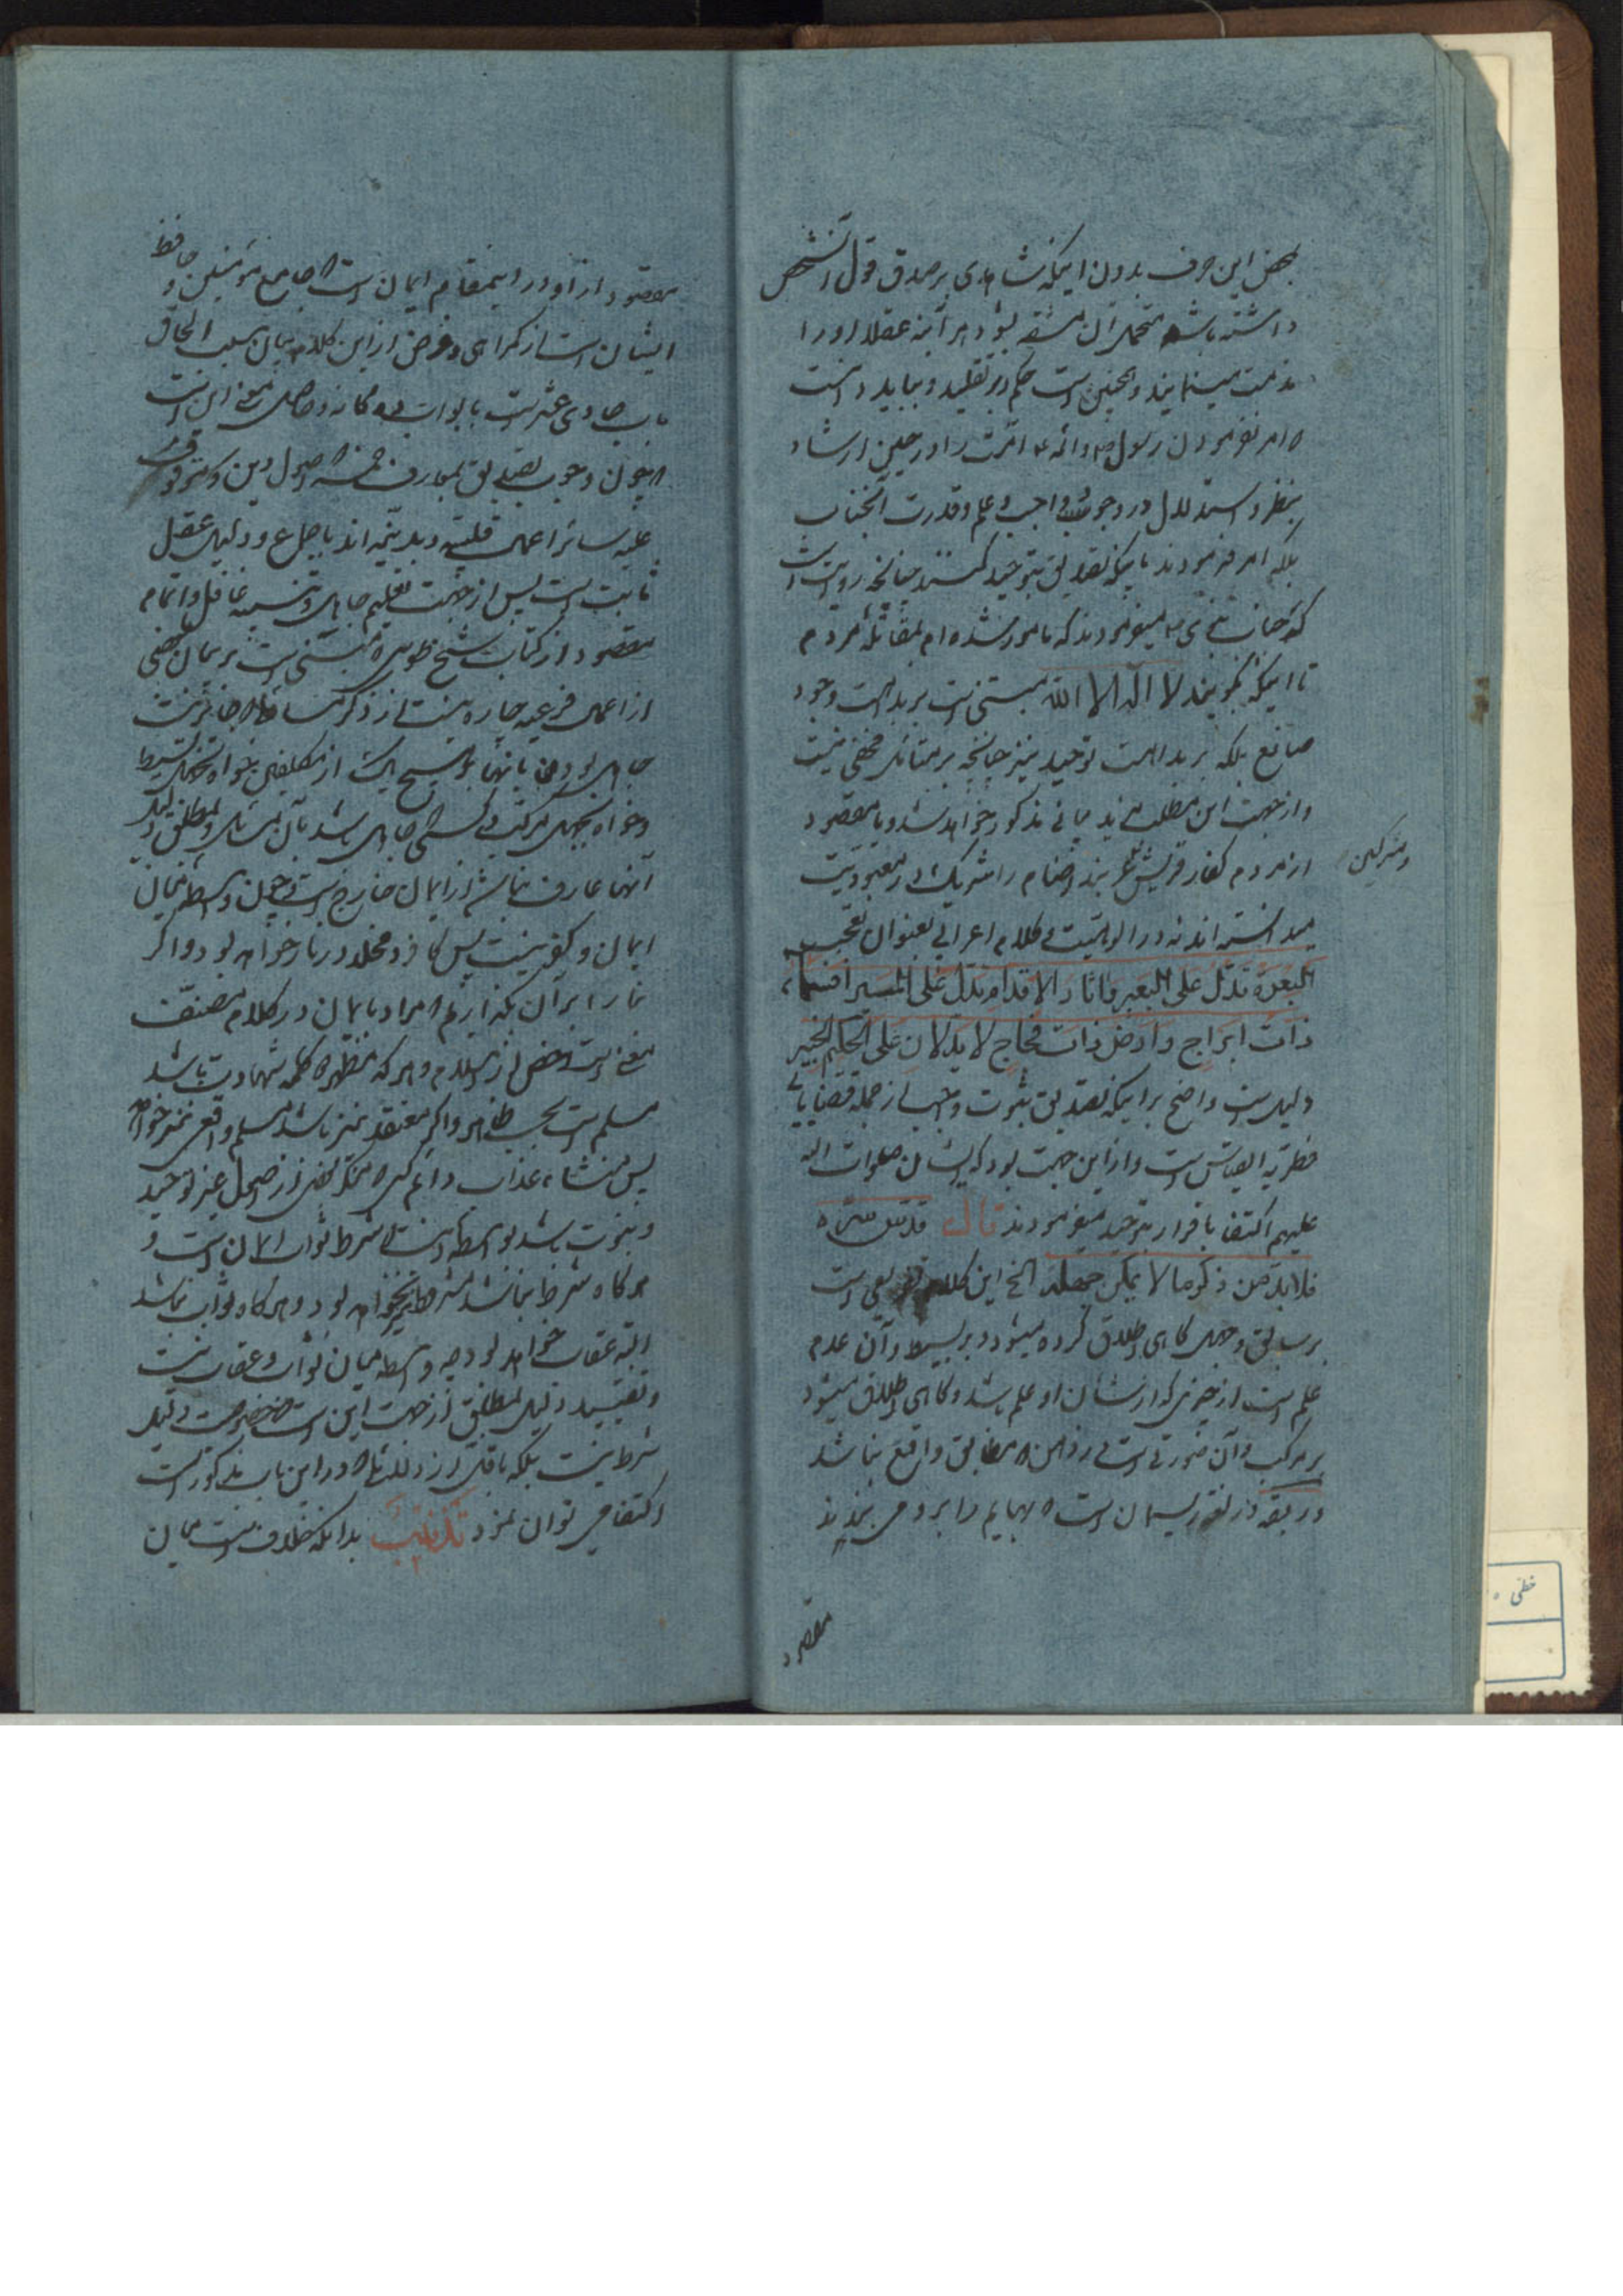 بمحض این حرف بدون اینکه شاهدی بر صدق قول آن شخص
داشته باشد متحمل آن مشقه بشود هر آینه عقلا او را
مذمت مینمایند و همچنین است حکم در تقلید و بباید دانست
که امر نفرمودن رسول ص و ائمه ع امت را در حین ارشاد
بنظر و استدلال در وجود واجب و علم و قدرت آنجناب
بلکه امر فرمودند باینکه تصدیق بتوحید کنند چنانچه روایت است
که جناب نبوی ص میفرمودند که مامور شده ام بمقاتله مردم
تا اینکه بگویند لا اله الا الله مبتنی است بر بداهت وجود
صانع بلکه بر بداهت توحید نیز چنانچه بر متأمل مخفی نیست
و از جهت این مطلب مزید بیانی مذکور خواهد شد و یا مقصود
از مردم کفار قریش اند اصنام را شریک در معبودیت
ومشرکین
میدانسته اند نه در الوهیت و کلام اعرابی بعنوان تعجب
البعرة تدل علی البعیر واثار الاقدام تدل علی المسیر افسماء
ذات ابراج وارض ذات فجاج لا یدلان علی الحکیم الخبیر
دلیل است واضح بر اینکه تصدیق بثبوت واجب از جمله قضایای
فطریه القیاس است و از این جهت بود که ایشان صلوات الله
علیهم اکتفا باقرار بتوحید میفرمودند قال قدس سره
فلا بد من ذکر ما لا یمکن جهله الخ این کلام تفریعی است
بر سابق و جهل گاهی اطلاق کرده میشود بر بسیط و آن عدم
علم است از چیزی که از شان او علم باشد و گاهی اطلاق میشود
بر مرکب و آن صورتی است در ذهن که مطابق واقع نباشد
و ربقه در لغة ریسمان است که بهایم را بر او می بندند
مقصود
مقصود از او در اینمقام ایمان است که جامع مؤمنین و حافظ
ایشان است از گمراهی و غرض از این کلام بیان سبب الحاق
باب حادی عشر است بابواب ده گانه و حاصل معنی این است
که چون وجوب تصدیق بمعارف خمسه که اصول دین و موقوف
علیه سایر اعمال قلبیه و بدنیه اند باجماع و دلیل عقل
ثابت است پس از جهت تعلیم جاهل و تنبیه غافل و اتمام
مقصود از کتاب شیخ طوسی که مبتنی است بر بیان بعضی
از اعمال فرعیه چاره نیست از ذکر مسائلی که جایز نیست
جاهل بودن بانها بر هیچ یک از مکلفین خواه بجهل بسیط
و خواه بجهل مرکب و کسی که جاهل باشد بآن مسائل و بمطلق دلیل
آنها عارف نباشد از ایمان خارج است و چون واسطه میان
ایمان و کفر نیست پس کافر و مخلد در نار خواهد بود و اگر
بنا را بر آن بگذاریم که مراد بایمان در کلام مصنف
معنی است اخص از اسلام و هر که مظهر کلمه شهادت باشد
مسلم است بحسب ظاهر و اگر معتقد نیز باشد مسلم واقعی نیز خواهد
پس منشاء عذاب دائم کسی که منکر بعضی از اصول غیر توحید
و نبوت باشد بواسطه اینست که شرط ثواب ایمان است و
هر گاه شرط نباشد مشروط نیز نخواهد بود و هر گاه ثواب نباشد
البته عقاب خواهد بود چه واسطه میان ثواب و عقاب نیست
و تقیید دلیل بمطلق از جهت این است که خصوصیت دلیل
شرط نیست بلکه باقل از دلائلی که در این باب مذکور است
اکتفا می توان نمود تذنیب بدانکه خلاف است میان
خطی